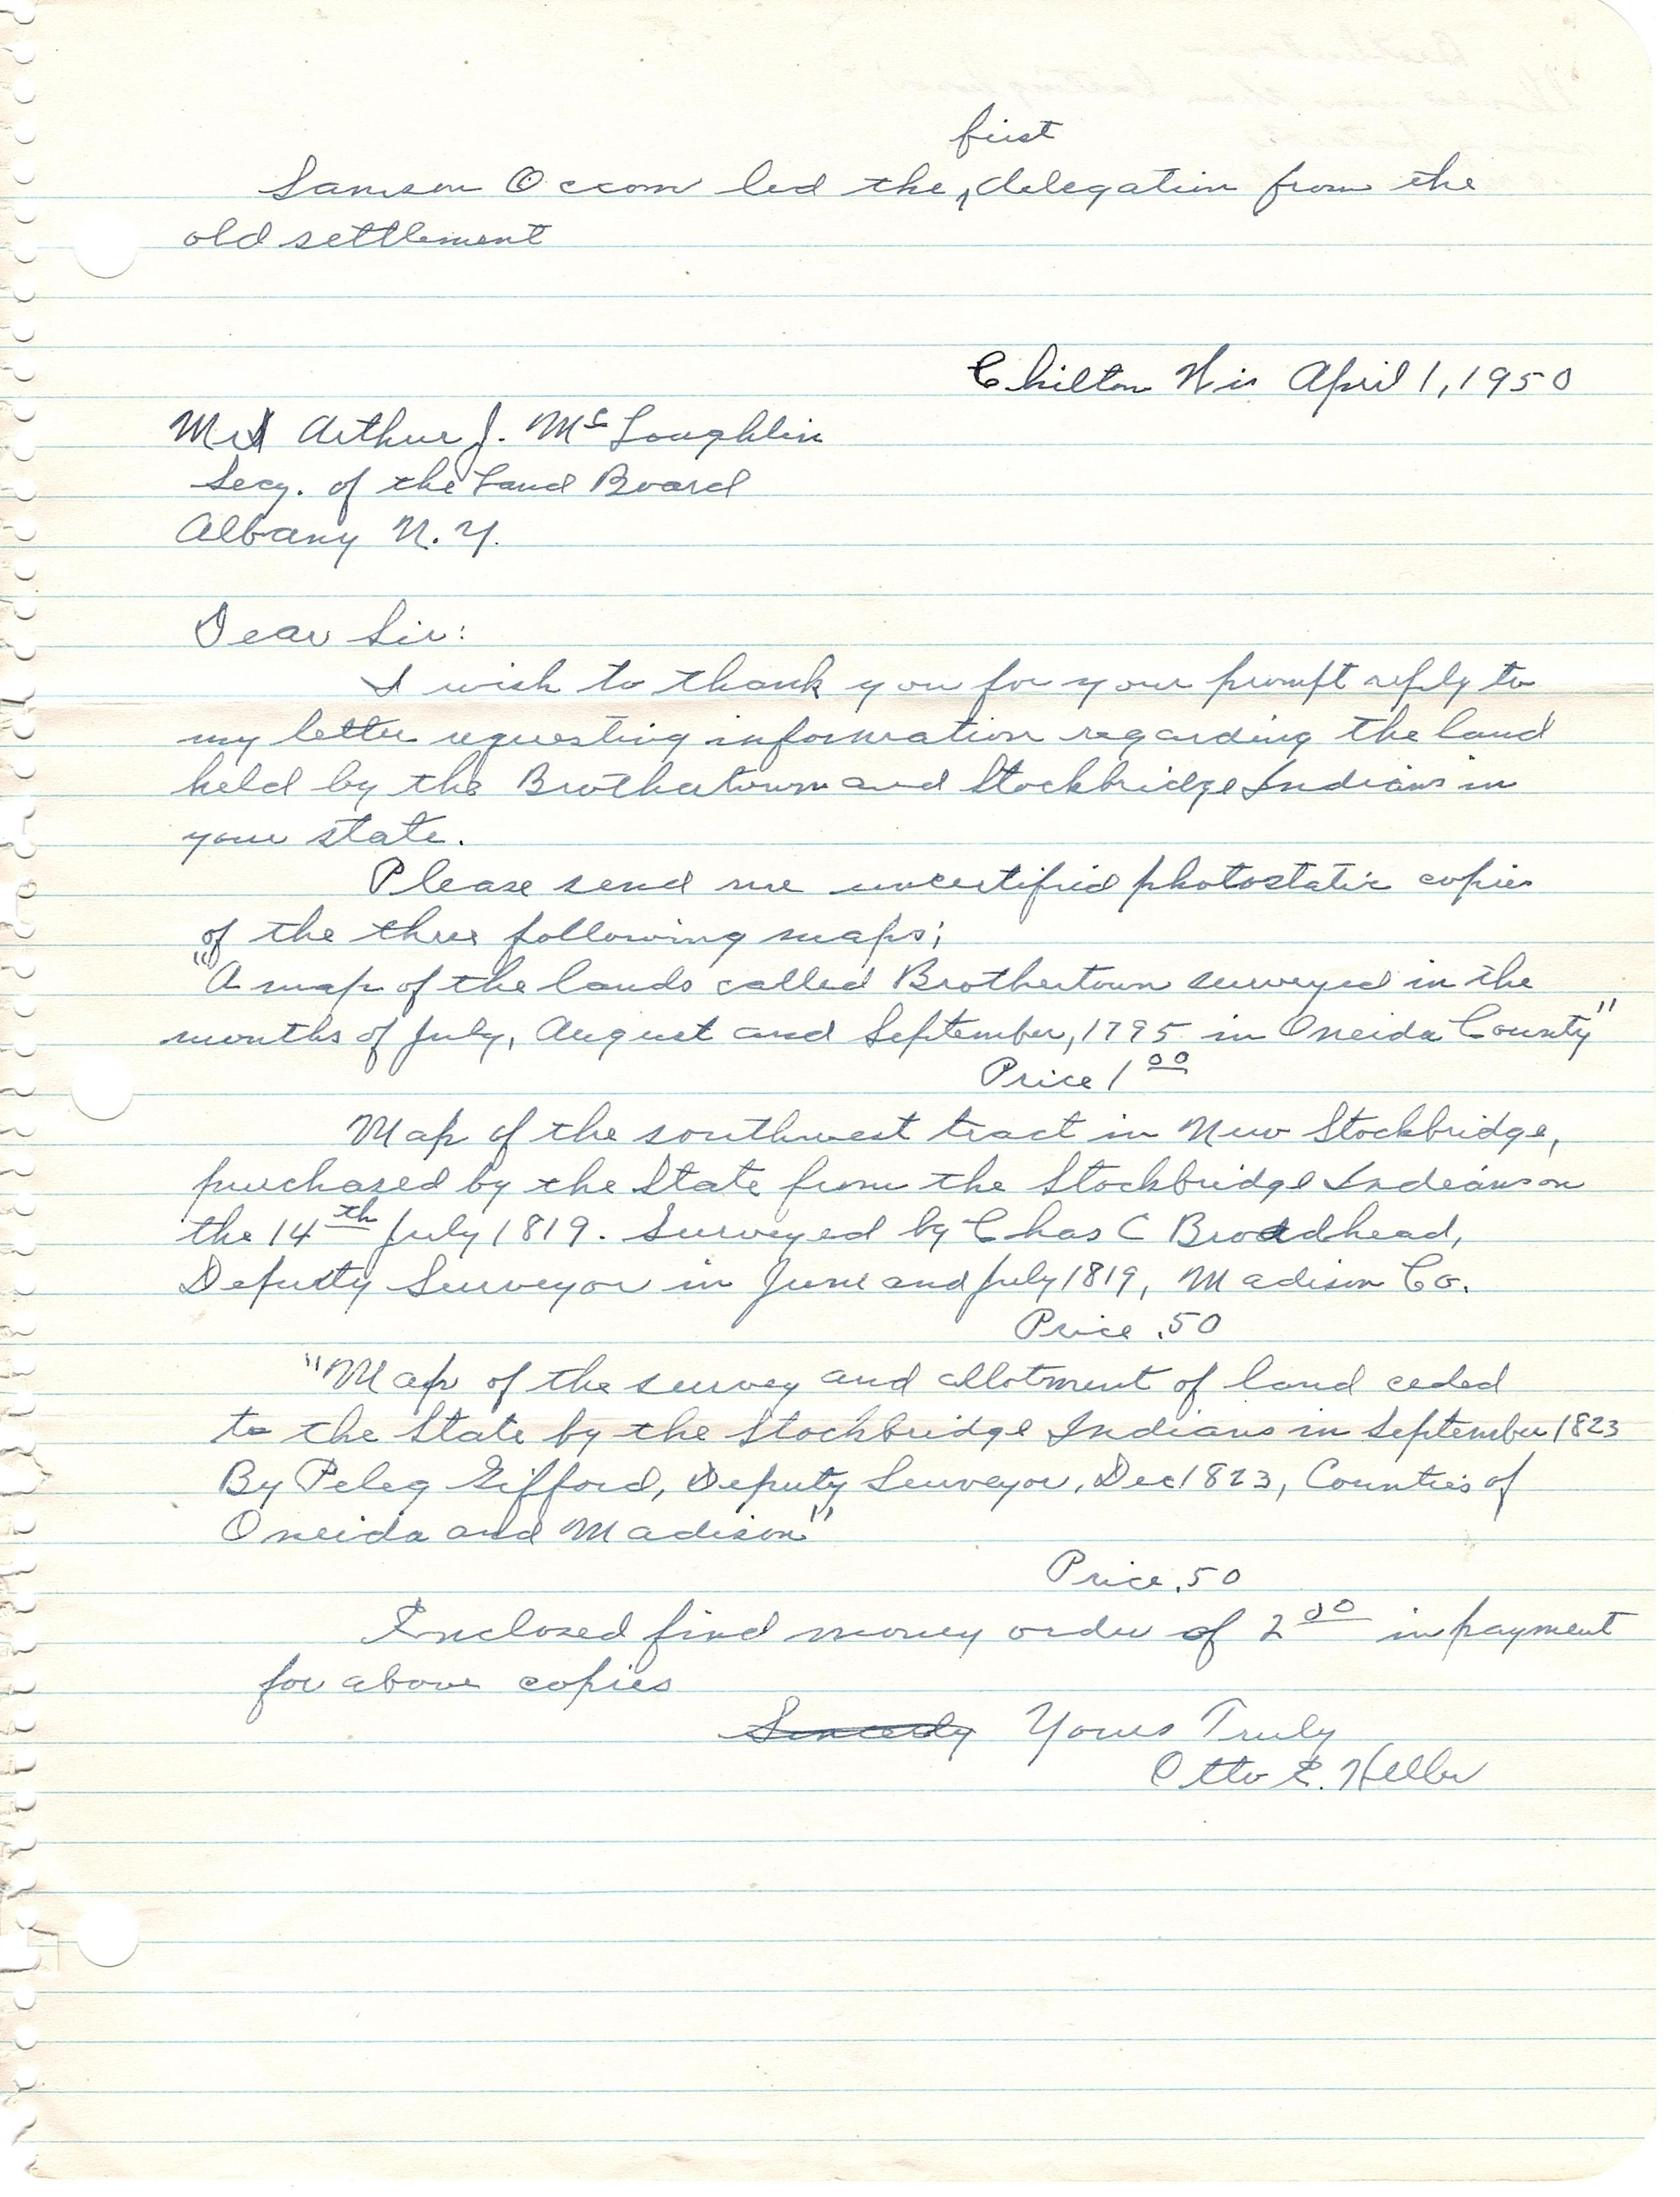 first
Samson Occom led the ‸ delegation from the
old settlement
Chilton Wis April 1, 1950
Mr Arthur J. McLoughlin
Secy. of the Land Board
Albany N.Y.
Dear Sir:
I wish to thank you for your prompt reply to
my letter requesting information regarding the land
held by the Brothertown and Stockbridge Indians in
your state.
Please send me uncertified photostatic copies
of the three following maps;
"A map of the lands called Brothertown surveyed in the
months of July, August and September, 1795 in Oneida County"
Price 1 00
Map of the southwest tract in New Stockbridge,
purchased by the State from the Stockbridge Indians on
the 14th July 1819. Surveyed by Chas C Broadhead,
Deputy Surveyor in June and July 1819, Madison Co.
Price .50
"Map of the survey and allotment of land ceded
to the State by the Stockbridge Indians in September 1823
By Peleg Gifford, Deputy Surveyor, Dec 1823, Counties of
Oneida and Madison"
Price .50
Enclosed find money order of 2 00 in payment
for above copies
Sincerly Yours Truly
Otto E. Heller